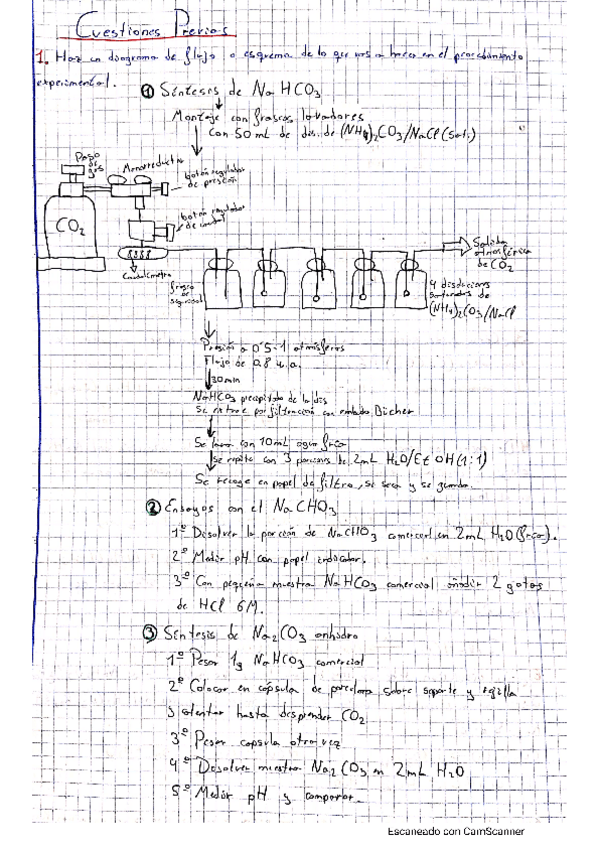 Cuestiones Previas
1. Haz un diagrama de flujo o esquema de lo que vas a hacer en el procedimiento
experimental.
① Síntesis de NaHCO3
Montaje con frascos lavadores
con 50 mL de dis. de (NH4)2CO3/NaCl (sat.)
Paso de gas
Monorreductor
botón regulador de presión
botón regulador de caudal
CO2
8888
Caudalímetro
frasco de seguridad
Salida atmosférica de CO2
4 disoluciones saturadas de (NH4)2CO3/NaCl
Presión a 0'5-1 atmósferas
Flujo de 0.8 u.a.
30 min
NaHCO3 precipitado de la dis
Se extrae por filtración con embudo Bücher
Se lava con 10 mL agua fría
se repite con 3 porciones de 2mL H2O/EtOH (1:1)
Se recoge en papel de filtro, se seca y se guarda
② Ensayos con el NaCHO3
1º Disolver la porción de NaCHO3 comercial en 2mL H2O (fría).
2º Medir pH con papel indicador.
3º Con pequeña muestra NaHCO3 comercial añadir 2 gotas
de HCl 6M.
③ Síntesis de Na2CO3 anhidro
1º Pesar 1g NaHCO3 comercial
2º Colocar en cápsula de porcelana sobre soporte y rejilla
y calentar hasta desprender CO2
3º Pesar capsula otra vez
4º Disolver muestra Na2CO3 en 2mL H2O
5º Medir pH y comparar.
Escaneado con CamScanner